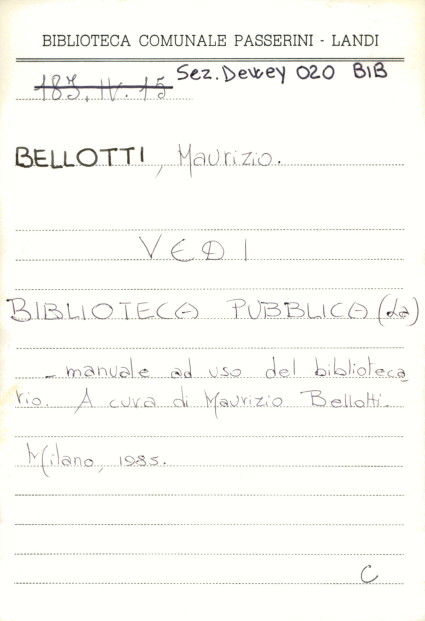 BIBLIOTECA COMUNALE PASSERINI - LANDI
Sez. Dewey 020 BIB
183. IV. 15
BELLOTTI, Maurizio.
VEDI
BIBLIOTECA PUBBLICA (La)
- manuale ad uso del biblioteca
rio. A cura di Maurizio Bellotti.
Milano, 1985.
C